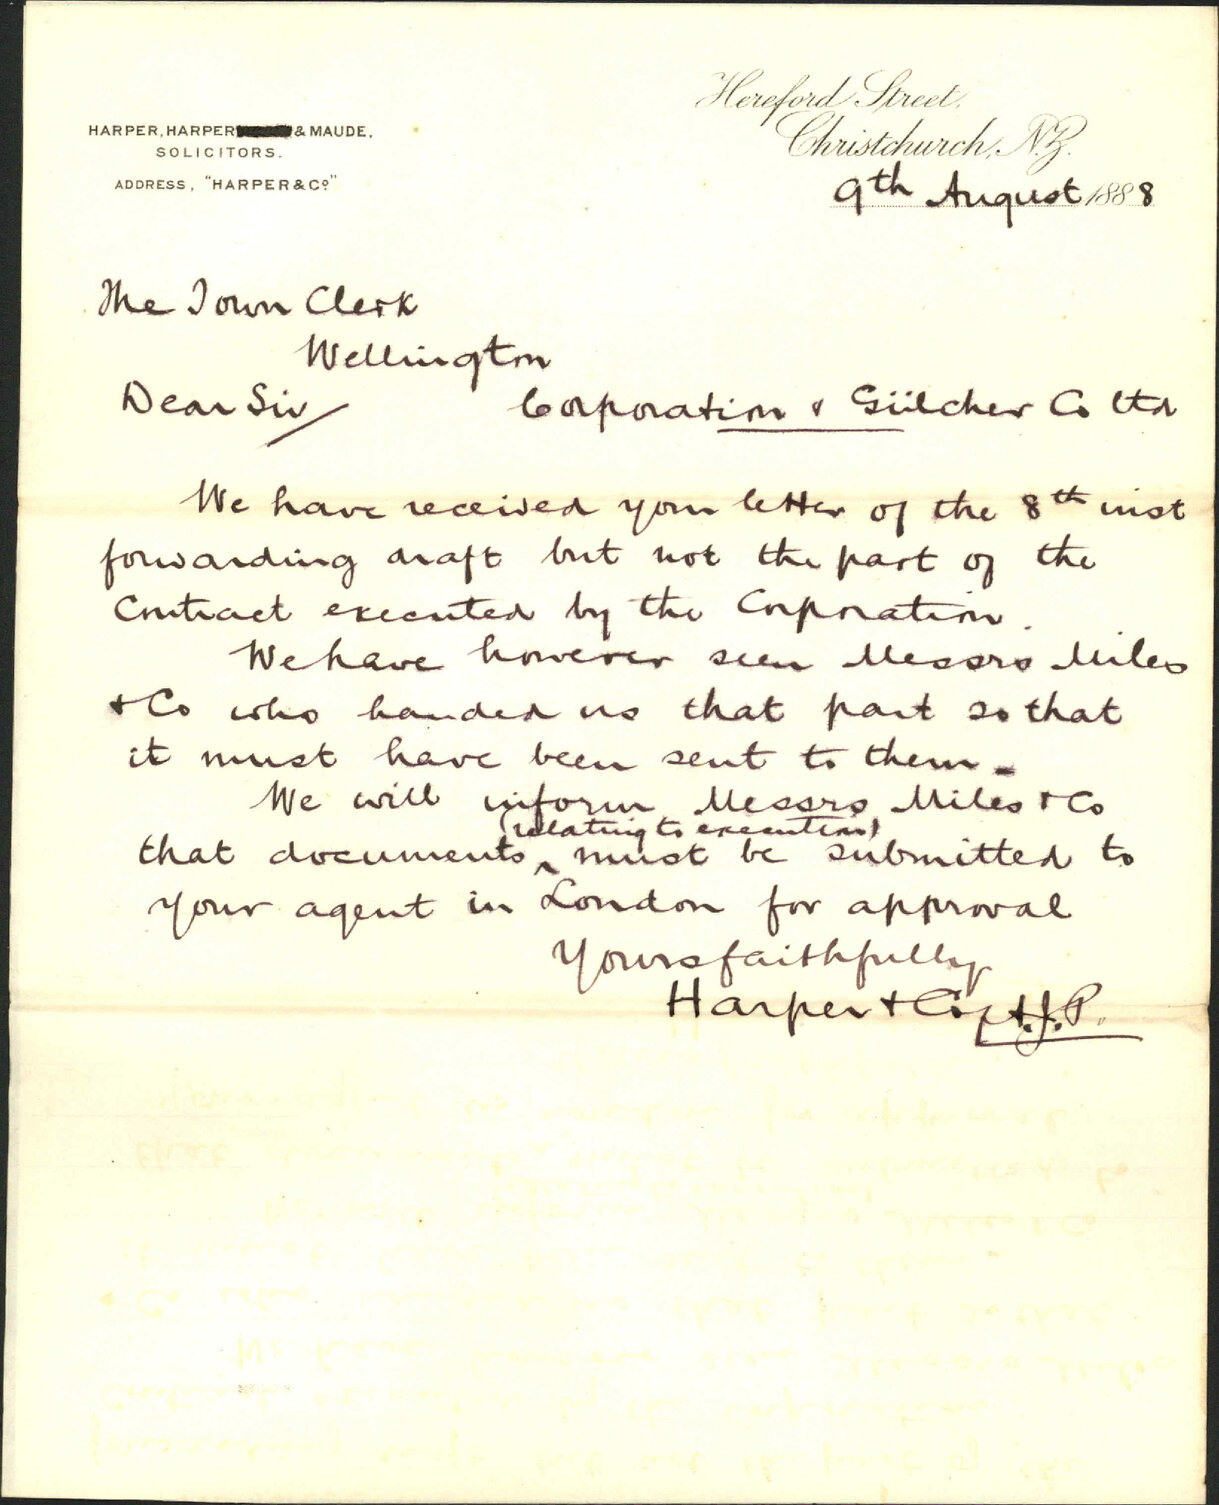 HARPER, HARPER & MAUDE,
SOLICITORS.
ADDRESS, "HARPER & Co"
Hereford Street,
Christchurch, N.Z.
9th August 1888
The Town Clerk
Wellington
Dear Sir/ Corporation & Gülcher Co Ltd
We have received your letter of the 8th inst
forwarding draft but not the part of the
Contract executed by the Corporation.
We have however seen Messrs Miles
& Co who handed us that part so that
it must have been sent to them -
We will inform Messrs Miles & Co
(relating to execution)
that documents ‸ must be submitted to
your agent in London for approval
Yours faithfully
Harper & Co